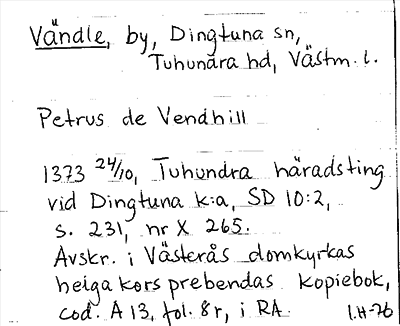 Vändle, by, Dingtuna sn,
Tuhundra hd, Västm. l.
Petrus de Vendhill
1373 24/10, Tuhundra häradsting
vid Dingtuna k:a, SD 10:2,
s. 231, nr X 265.
Avskr. i Västerås domkyrkas
helga kors prebendas kopiebok,
cod. A 13, fol. 8r, i RA.
I.H-76